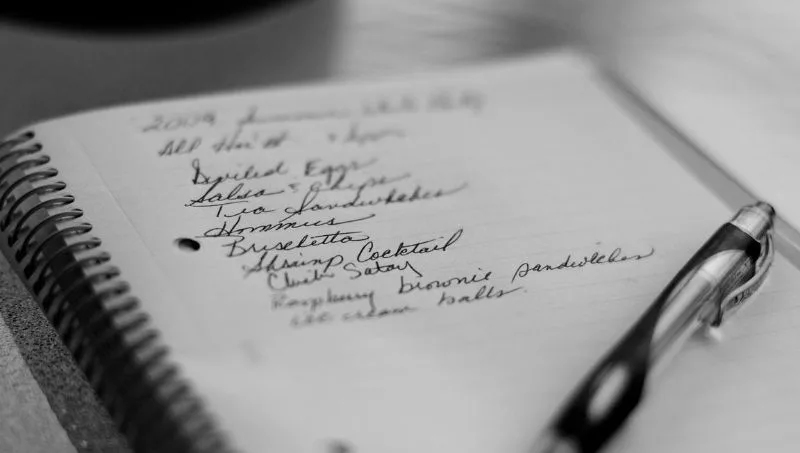 2009 Summer White Party
Deviled Eggs
Salsa & Chips
Tea Sandwiches
Hommus
Bruschetta
Shrimp Cocktail
Satay
Raspberry brownie sandwiches
ice cream balls.